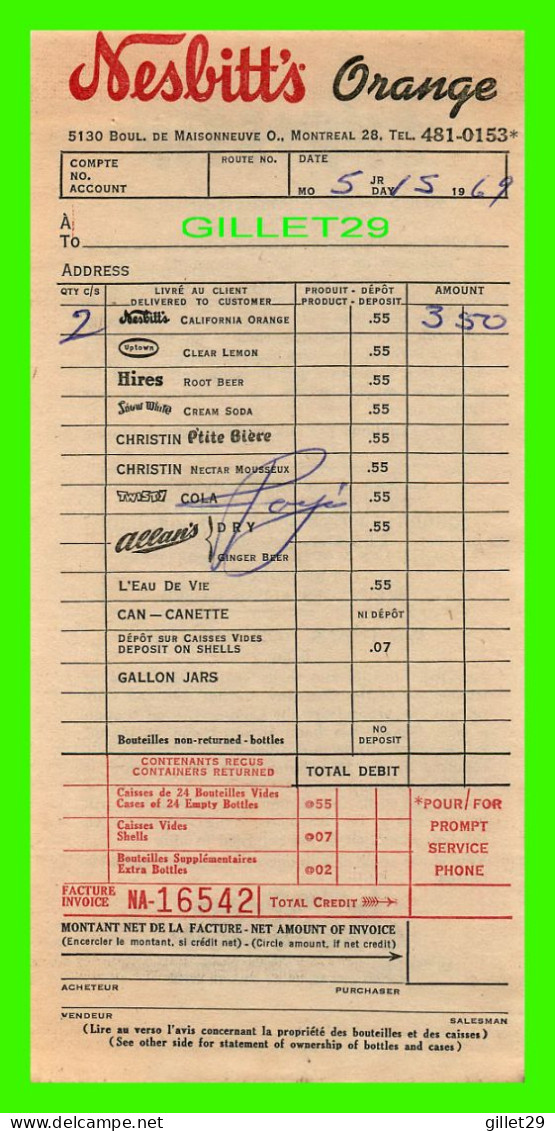 Nesbitt's Orange
5130 Boul. de Maisonneuve O., Montreal 28, Tel. 481-0153*
COMPTE NO. ACCOUNT ROUTE NO. DATE
MO 5 JR DAY 15 1969
À
To
GILLET29
ADDRESS
QTY C/S LIVRÉ AU CLIENT DELIVERED TO CUSTOMER PRODUIT - DÉPÔT PRODUCT - DEPOSIT AMOUNT
2 Nesbitt's CALIFORNIA ORANGE .55 3 50
Uptown CLEAR LEMON .55
Hires ROOT BEER .55
Snow White CREAM SODA .55
CHRISTIN P'tite Bière .55
CHRISTIN NECTAR MOUSSEUX .55
TWISTY COLA .55
Payé
Allan's DRY .55
GINGER BEER
L'EAU DE VIE .55
CAN — CANETTE NI DÉPÔT
DÉPÔT SUR CAISSES VIDES
DEPOSIT ON SHELLS .07
GALLON JARS
Bouteilles non-returned - bottles NO DEPOSIT
CONTENANTS RECUS
CONTAINERS RETURNED TOTAL DEBIT
Caisses de 24 Bouteilles Vides
Cases of 24 Empty Bottles @55
Caisses Vides
Shells @07
Bouteilles Supplémentaires
Extra Bottles @02
*POUR/FOR
PROMPT
SERVICE
PHONE
FACTURE INVOICE NA-16542 TOTAL CREDIT
MONTANT NET DE LA FACTURE - NET AMOUNT OF INVOICE
(Encercler le montant, si crédit net) - (Circle amount, if net credit)
ACHETEUR PURCHASER
VENDEUR SALESMAN
(Lire au verso l'avis concernant la propriété des bouteilles et des caisses)
(See other side for statement of ownership of bottles and cases)
gillet29